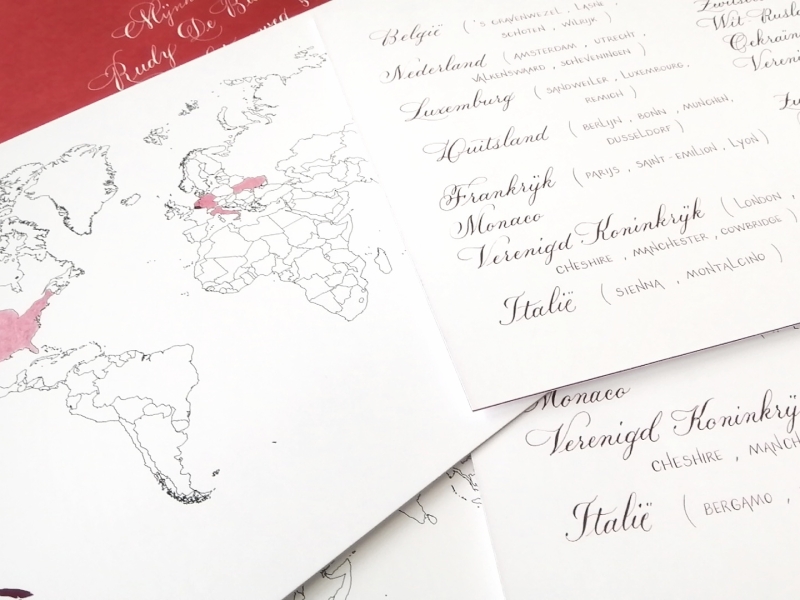 Mijnh
Rudy De B
België ('s GRAVENWEZEL, LASNE,
SCHOTEN, WILRIJK)
Nederland (AMSTERDAM, UTRECHT,
VALKENSWAARD, SCHEVENINGEN)
Luxemburg (SANDWEILER, LUXEMBOURG,
REMICH)
Duitsland (BERLIJN, BONN, MUNCHEN,
DUSSELDORF)
Frankrijk (PARIJS, SAINT-EMILION, LYON)
Monaco
Verenigd Koninkrijk (LONDON,
CHESHIRE, MANCHESTER, COWBRIDGE)
Italië (SIENNA, MONTALCINO)
Wit Rusla
Oekraïn
Vereni
Monaco
Verenigd Koninkrij
CHESHIRE, MANCH
Italië (BERGAMO,